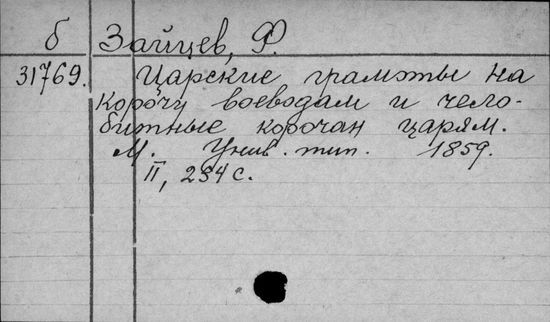 б Зайцев, Ф.
31769. Царские грамоты на
Корочу воеводам и чело-
битные корочан царям.
М. Унив. тип. 1859.
II, 234 с.